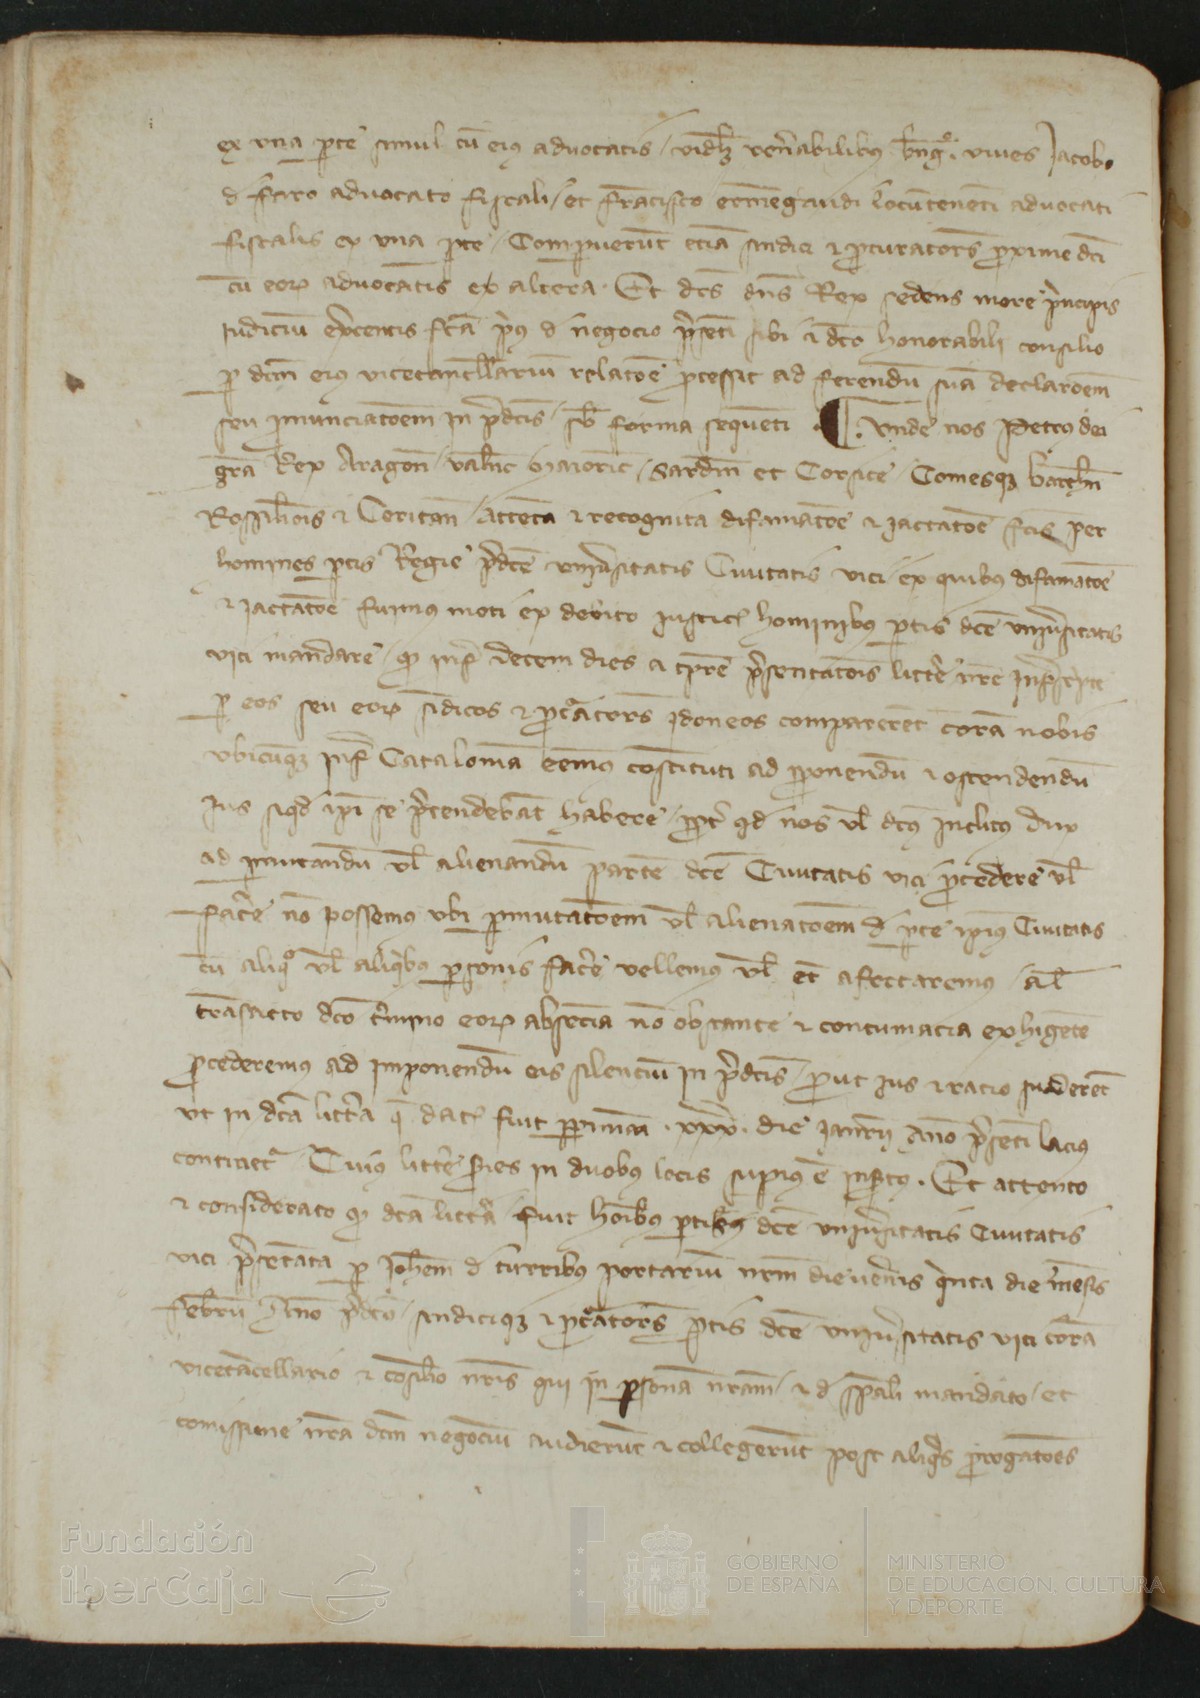 ex una pte simul cu eiq advocatis / vidz ven'abilibq bng°. vives Jacobo
d faro advocato fiscali / et francisco ermegaudi locuteneti advocati
fiscalis ex una pte / Compuerut etia sindici & pcurators proxime dci
cu eorum advocatis ex altera. Et dcs dns Rex sedens more principis
iudiciu exercentis fca prius d negocio pnseti sibi & dco honorabili consilio
p dcm eiq vicecancellariu relatoe pcessit ad ferendu sua declaroem
seu pnunciatoem in pdcis / sb forma sequenti . Unde nos Petrus dei
gra Rex Aragon / Valenc Maioric / Sardin et Corsice / Comesqz barchn
Rossilionis & Ceritan / Attenta & recognita difamatoe & jactatoe fcis per
homines ptis Regie pdce universitatis Civitatis vici ex quibus difamatoe
& jactatoe fuimus moti ex debito justicie hominibus ptis dce universitatis
vici mandare / q infra decem dies a tpre psentatois littere nre inpscripte
p eos seu eorum sindicos & pcatores ydoneos comparerent cora nobis
ubicumqz infra Catalonia eemus costituti ad pponendu & ostendendu
Jus siqd ipi se ptendebat habere / ppter qd nos vl dcus inclitus dux
ad pmutandu vl alienandu parte dce Civitatis vici pcedere vl
facere no possemus ubi pmutatoem vl alienatoem d pte ipius Civitatis
cu aliquo vl aliquibus psonis facere vellemus vl et afectaremus / al
transacto dco termino eorum absencia no obstante & contumacia exhigete
procederemus ad imponendu eis silenciu in pdcis / prout jus & racio suaderet
ut in dca littera q data fuit ppiniani .xxx. die januarii Anno pseti lacius
continetur. Cuius littere series in duobus locis superius e insertus. Et attento
& considerato q dca littera fuit hoibus ptis dce universitatis Civitatis
vici psetata p Johem d turribus portariu nrm die veneris quinta die mesis
februarii Anno pdco / sindiciqz & pcatores ptis dce universitatis vici cora
vicecancellario & cosilio nris qui in psona nram / & d spali mandato / et
comissione nra dcm negociu audierut & collegerut post aliquas prorogatoes
Fundación
iberCaja
GOBIERNO
DE ESPAÑA
MINISTERIO
DE EDUCACIÓN, CULTURA
Y DEPORTE